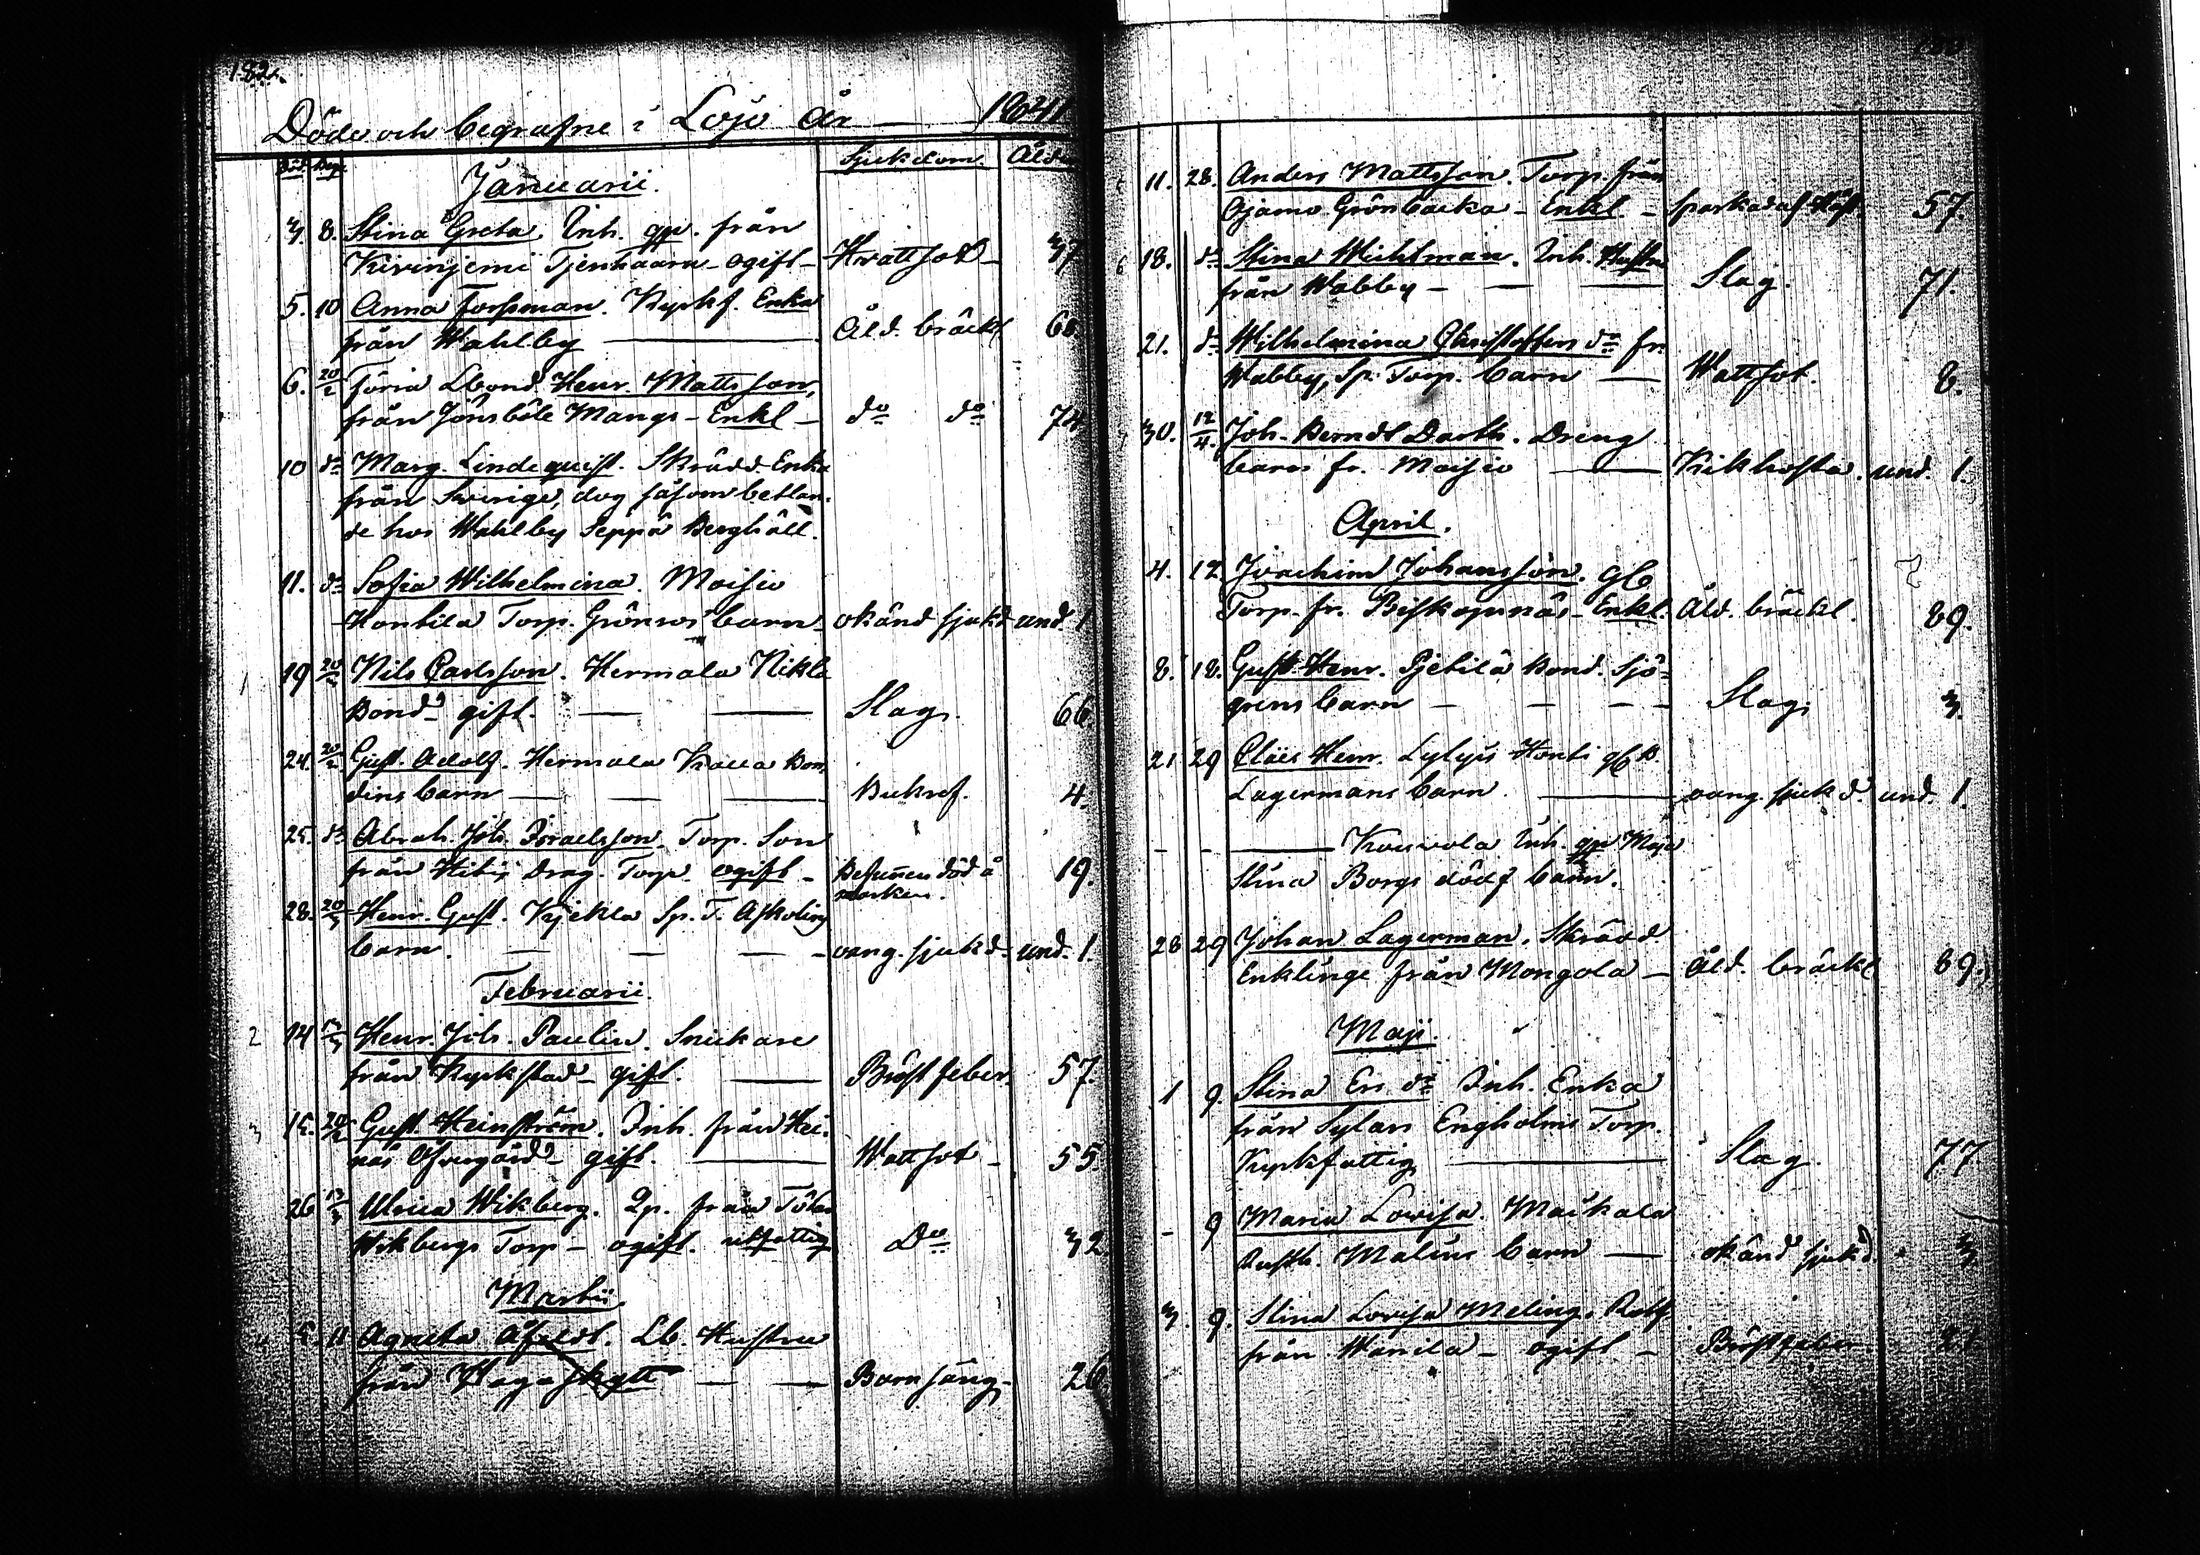 182.
Döde och begrafne i Lojo År 1841
Död Begr. Sjukdom Ålder
Januarii.
3. 8. Stina Greta. Inh. qp. från
Kiviniemi Tjenhaara - ogift - Wattsot - 37
5. 10 Anna Forsman. Kyrkf. Enka
från Wahlby — Åld. bräckl. 68
6. 20/2 Förra Lbond. Henr. Mattsson,
från Jönsböle Mangs - Enkl - do do 74
10 do Marg. Lindequist. Skrädd. Enka
från Swerige, dog såsom betlan-
de hos Wahlby Seppä Berghäll.
11. do Sofia Wilhelmina. Moisio
Hontila Torp. Grönros barn - okänd sjukd. und. 1
19 20/2 Nils Carlsson. Hermala Nikla
Bond. gift. — — Slag. 66
24. 20/2 Gust. Adolf. Hermala Bon-
dens barn — — — Bukref. 4.
25. do Abrah. Joh. Israelsson. Torp. Son
från Torp. ogift - Befunnen död å 19.
marken.
28. 20/3 Henr. Gust. Kjekla Sp. T. Askolins
barn. — — — vang. sjukd. und. 1.
Februarii.
2 14 Henr. Joh. Paulin. Snickare
från Kyrkstad - gift. — Bröstfeber. 57.
3 15. 20/2 Gust. Heinström. Inh. från Hei-
näs Öfvergård - gift. — Wattsot - 55.
26 Ulrica Wikberg. Qp. från
Wikbergs Torp - ogift. utfattig Do 32
Martii.
5. 11 Agneta Åfeldt. Lb. Hustru
från — — Barnsäng - 26
11. 28. Anders Mattsson. Torp. från
Ojamo Grönbacka - Enkl - sparkad af Häst 57.
6 18. do Stina Wichtman. Inh. Hustru
från Wabby - — — Slag. 71.
21. do Wilhelmina Christoffers dr fr.
Wabby, Sp. Torp. barn — Wattsot. 8.
30. 12/4. Joh. Berndt Dreng
barn fr. Moisio — Kikhosta. und. 1.
April.
4. 12 Joachim Johansson. gl.
Torp. fr. Biskopsnäs - Enkl. Åld. bräckl. 89.
8. 18. Gust. Henr. Pjetilä Bond. Sjö-
grens barn - - - - Slag. 3.
21 29 Claës Henr. Lylyis Honti gl. B
Lagermans barn. — vang. sjukd. und. 1.
- - — Kouvola Inh. qp Maja
Stina Borgs dödf. barn.
28 29 Johan Lagerman. Skrädd.
Enklinge från Mongola - Åld. bräckl 89.
Maji.
1 9. Stina Er. dr Inh. Enka
från Sylars Engholms Torp.
Kyrkfattig — Slag. 77
- 9 Maria Lovisa. Maikala
Rusth. Malins barn — okänd sjukd. 3.
3. 9. Stina Lovisa Meling.
från Wanila - ogift - Bröstfeber. 21